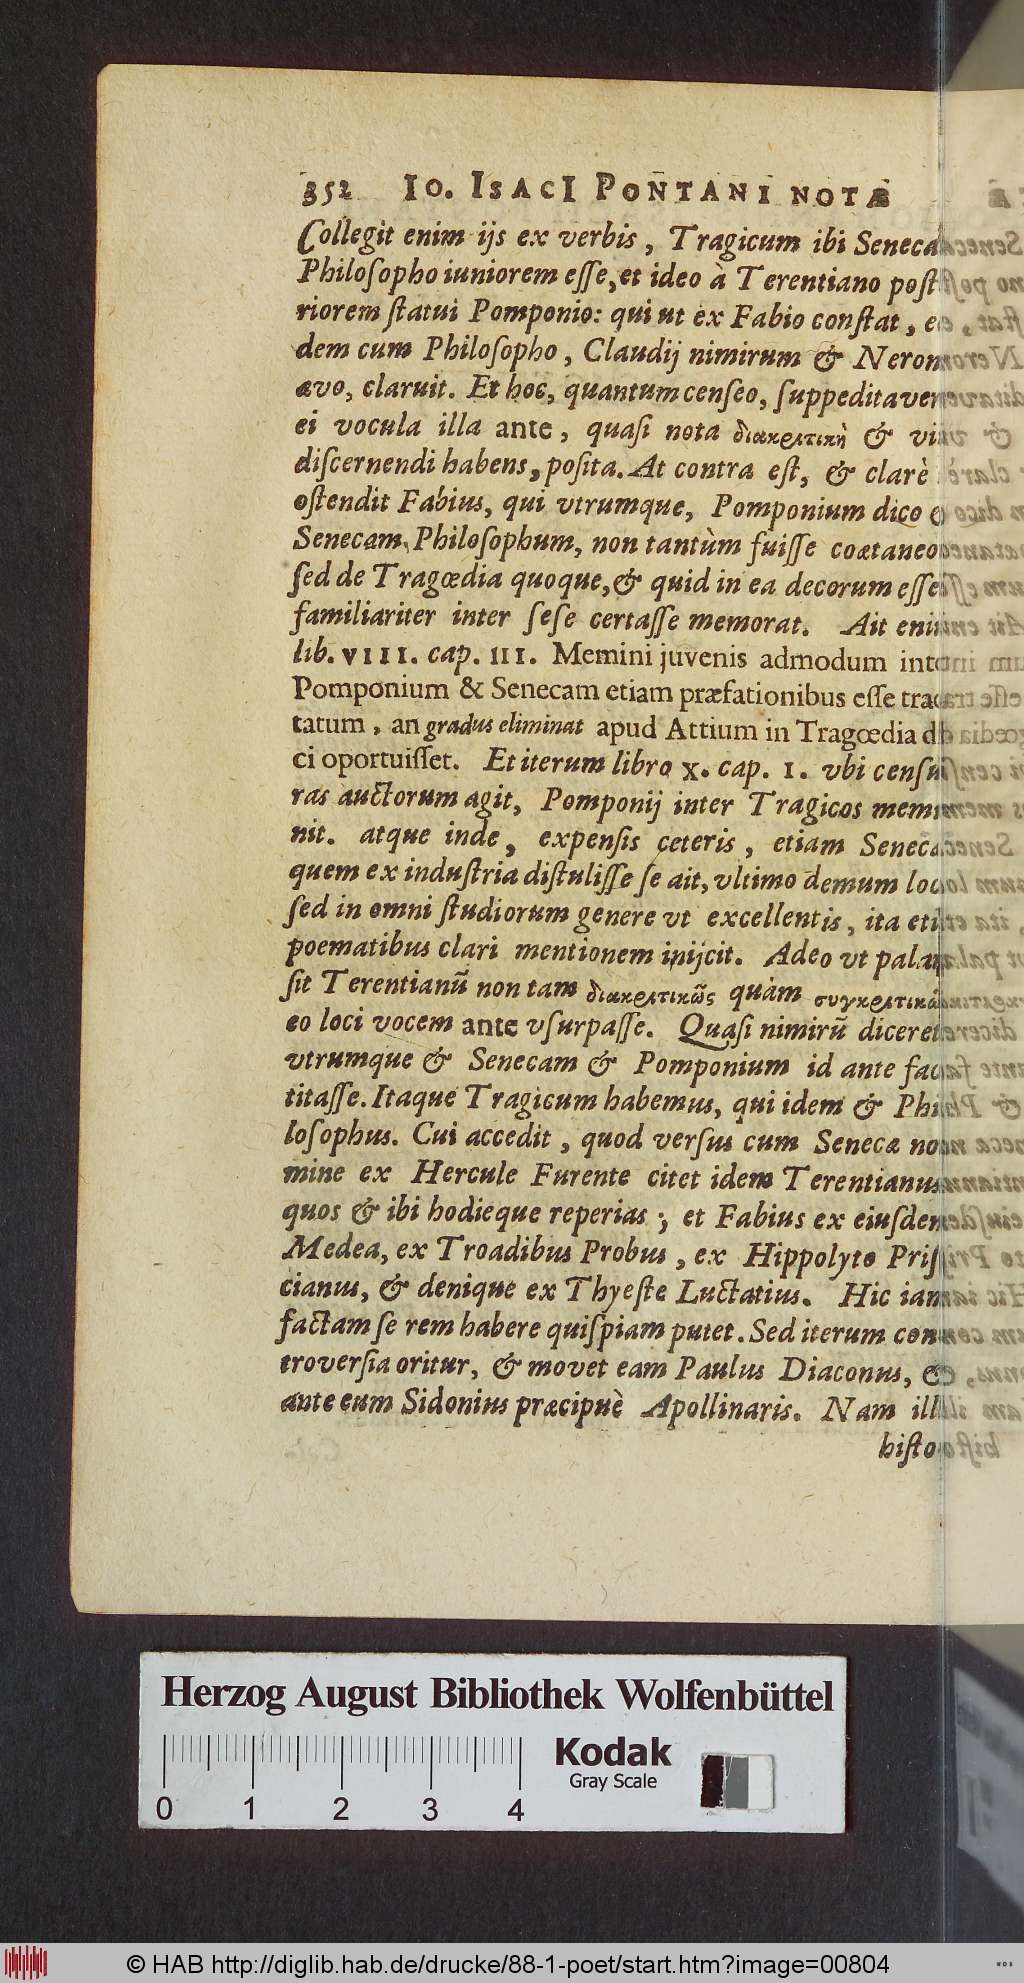 352 IO. ISACI PONTANI NOTÆ
Collegit enim ijs ex verbis, Tragicum ibi Seneca
Philosopho iuniorem esse, et ideo à Terentiano post
riorem statui Pomponio: qui ut ex Fabio constat, e
dem cum Philosopho, Claudij nimirum & Neron
ævo, claruit. Et hoc, quantum censeo, suppeditaver
ei vocula illa ante, quasi nota διακριτικὴ & vi
discernendi habens, posita. At contra est, & clarè
ostendit Fabius, qui vtrumque, Pomponium dico &
Senecam Philosophum, non tantùm fuisse coætaneo
sed de Tragœdia quoque, & quid in ea decorum esse
familiariter inter sese certasse memorat. Ait eni
lib. VIII. cap. III. Memini juvenis admodum int
Pomponium & Senecam etiam præfationibus esse tra
tatum, an gradus eliminat apud Attium in Tragœdia d
ci oportuisset. Et iterum libro X. cap. I. vbi censu
ras auctorum agit, Pomponij inter Tragicos memi
nit. atque inde, expensis ceteris, etiam Seneca
quem ex industria distulisse se ait, vltimo demum loc
sed in omni studiorum genere vt excellentis, ita eti
poematibus clari mentionem inijcit. Adeo vt pala
sit Terentianũ non tam διακριτικῶς quàm συγκριτικῶ
eo loci vocem ante vsurpasse. Quasi nimirũ diceret
vtrumque & Senecam & Pomponium id ante fac
titasse. Itaque Tragicum habemus, qui idem & Phi
losophus. Cui accedit, quod versus cum Senecæ no
mine ex Hercule Furente citet idem Terentianus
quos & ibi hodieque reperias; et Fabius ex eiusdem
Medea, ex Troadibus Probus, ex Hippolyto Pris
cianus, & denique ex Thyeste Luctatius. Hic iam
factam se rem habere quispiam putet. Sed iterum con
troversia oritur, & movet eam Paulus Diaconus, &
ante eum Sidonius præcipuè Apollinaris. Nam ill
histo
Herzog August Bibliothek Wolfenbüttel
Kodak
Gray Scale
0 1 2 3 4
© HAB http://diglib.hab.de/drucke/88-1-poet/start.htm?image=00804